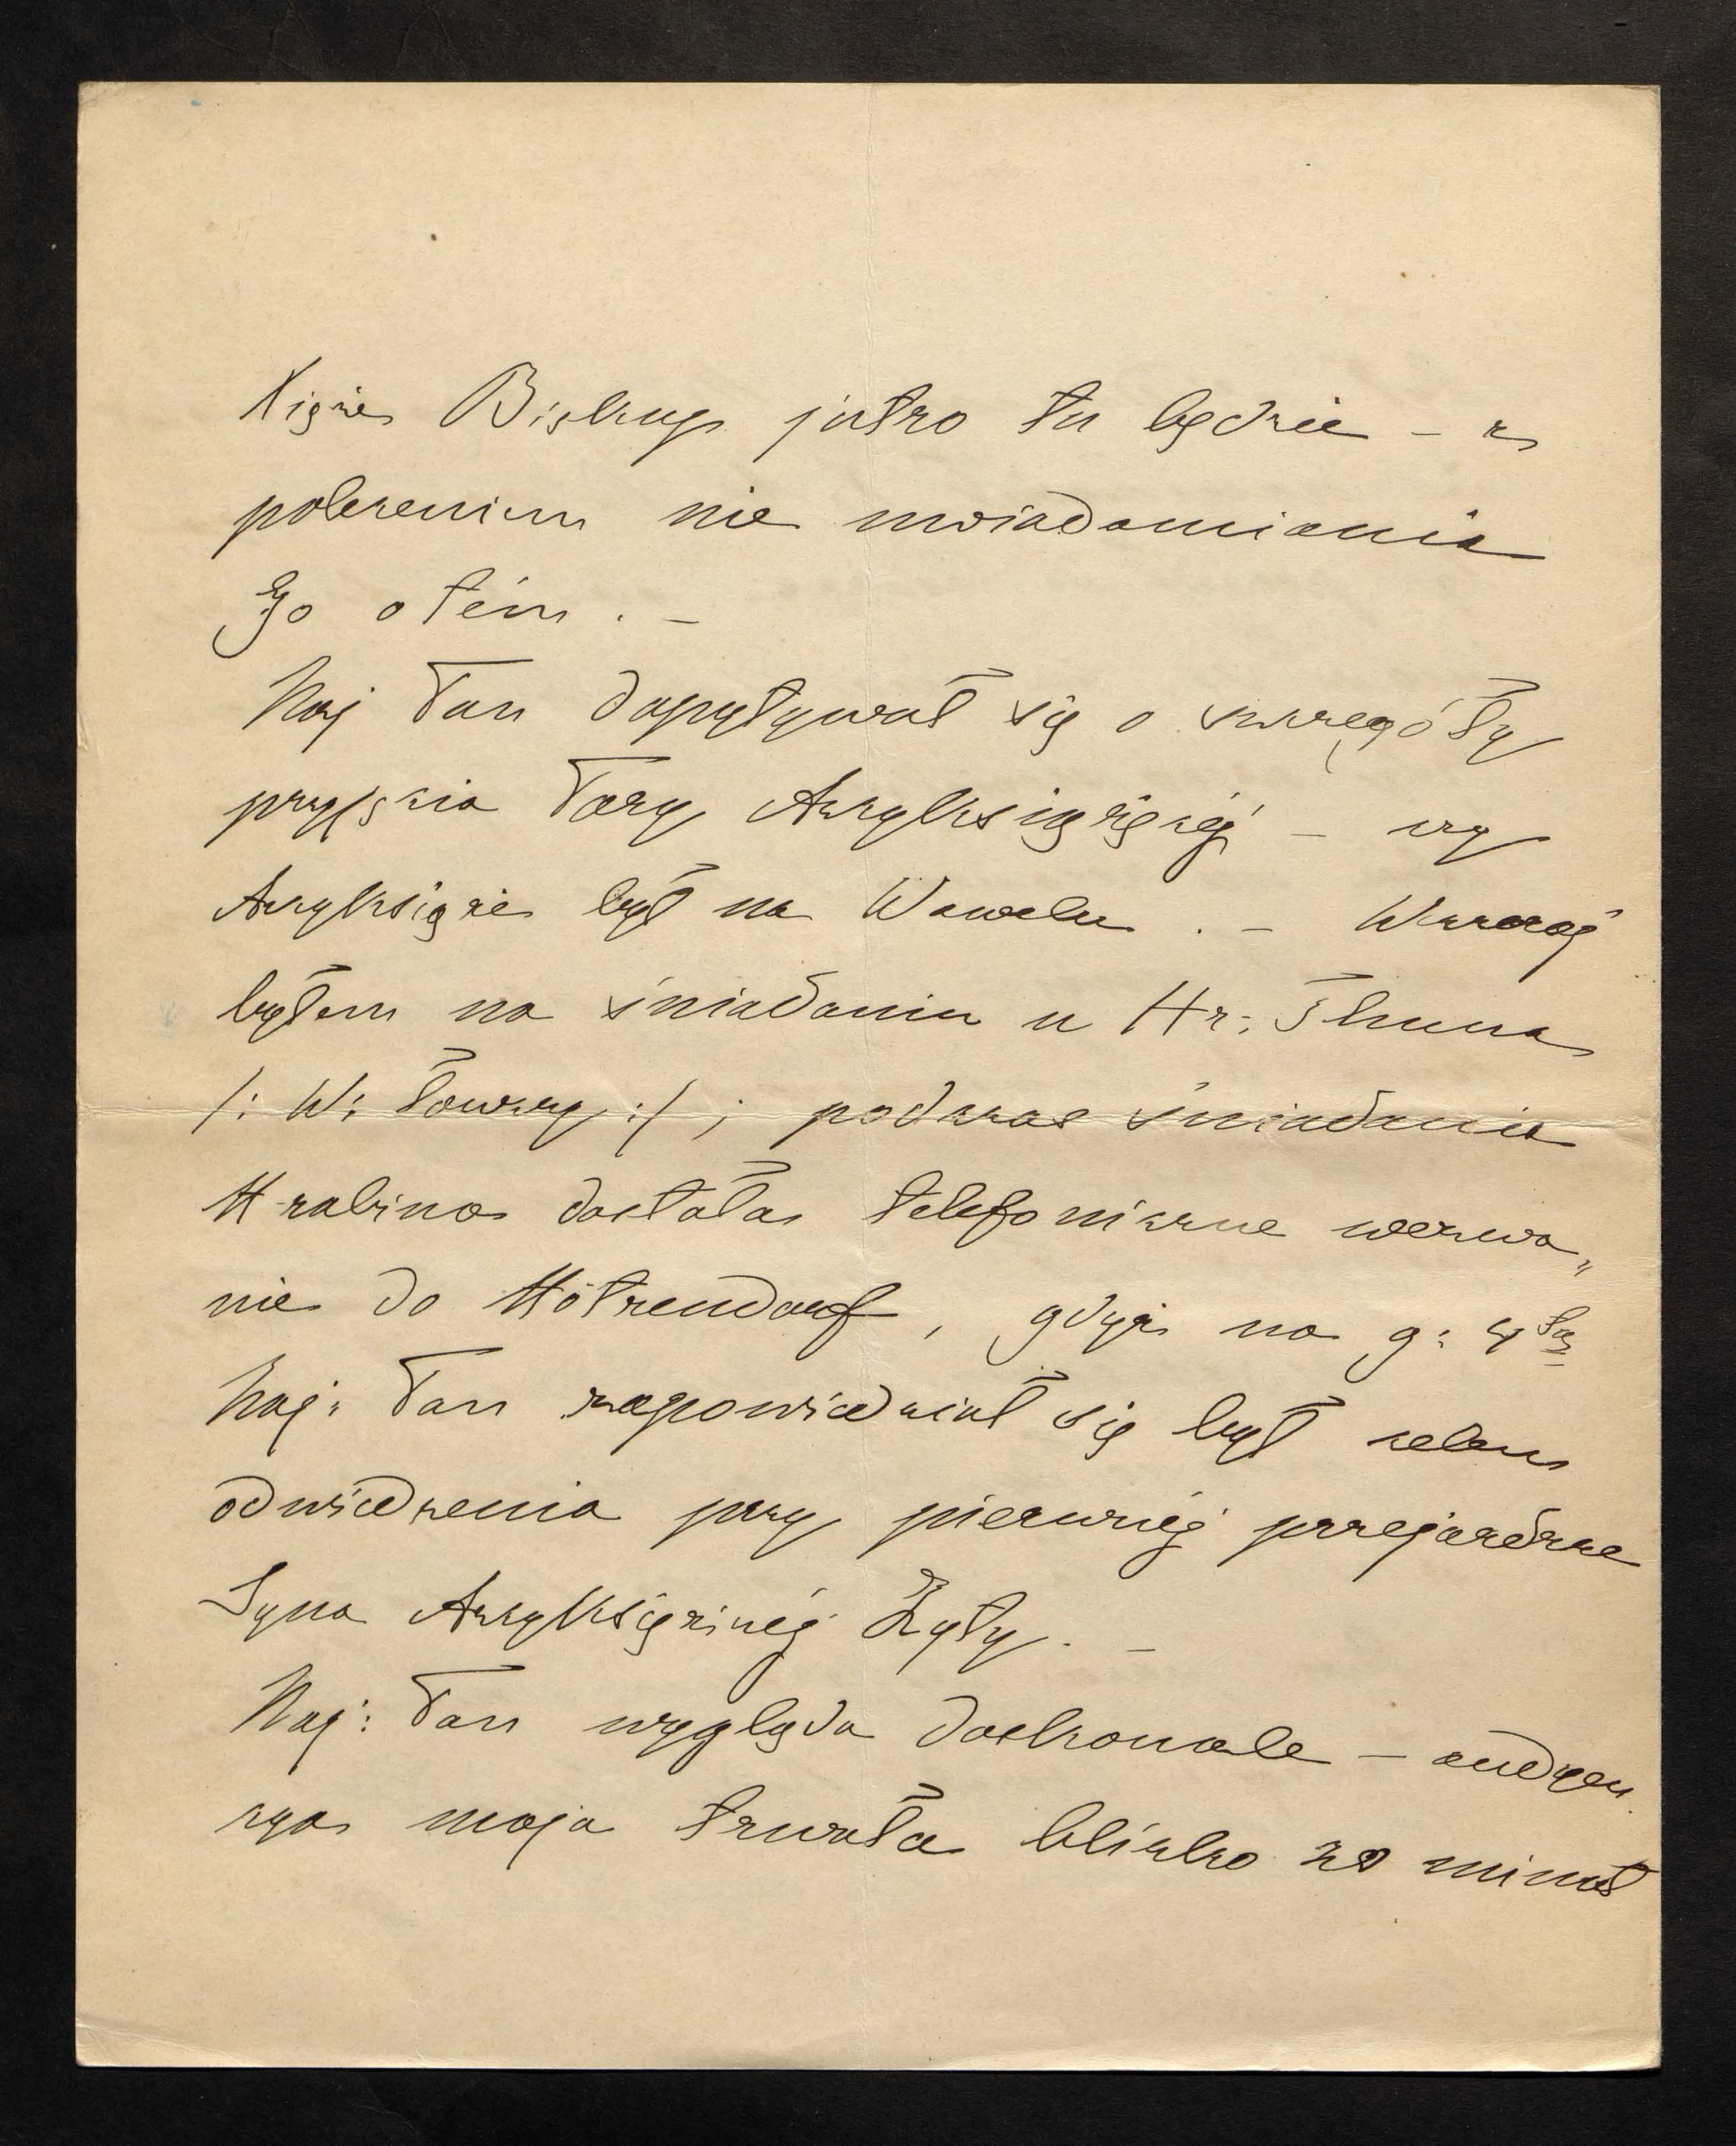 Xiąże Biskup jutro tu będzie – z
poleceniem nie uwiadomiania
Go o tém . –
Naj Pan dopytywał się o szczegóły
przyjęcia Pary Arcyksiążęcéj – czy
Arcyksiąże był na Wawelu . – Wczoraj
byłem na śniadaniu u Hr: Thuna
/: W: Łowczy :/ ; podczas śniadania
Hrabina dostała telefoniczne wezwa„
nie do Hötzendorf , gdyż na g: 4tą
Naj: Pan zapowiedział się był celem
odwiedzenia przy pierwszéj przejażdżce
Syna Arcyksiężnéj Zyty . –
Naj: Pan wygląda doskonale – audyen
cya moja trwała blizko 20 minut